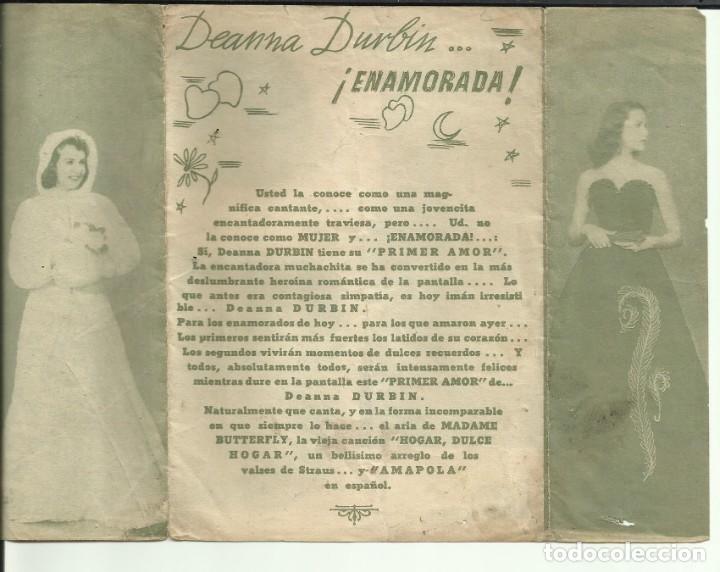 Deanna Durbin...
¡ENAMORADA!
Usted la conoce como una mag-
nifica cantante,.... como una jovencita
encantadoramente traviesa, pero.... Ud. no
la conoce como MUJER y... ¡ENAMORADA!...:
Si, Deanna DURBIN tiene su "PRIMER AMOR".
La encantadora muchachita se ha convertido en la más
deslumbrante heroina romántica de la pantalla.... Lo
que antes era contagiosa simpatia, es hoy imán irresisti
ble... Deanna DURBIN.
Para los enamorados de hoy... para los que amaron ayer...
Los primeros sentirán más fuertes los latidos de su corazón...
Los segundos vivirán momentos de dulces recuerdos... Y
todos, absolutamente todos, serán intensamente felices
mientras dure en la pantalla este "PRIMER AMOR" de...
Deanna DURBIN.
Naturalmente que canta, y en la forma incomparable
en que siempre lo hace... el aria de MADAME
BUTTERFLY, la vieja canción "HOGAR, DULCE
HOGAR", un bellisimo arreglo de los
valses de Straus... y "AMAPOLA"
en español.
todocoleccion.net